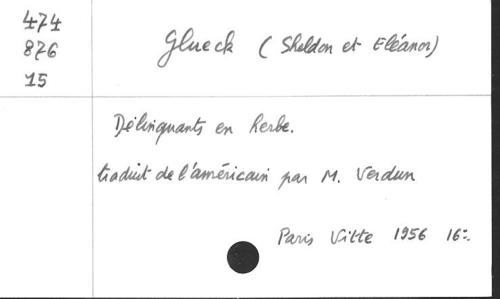 474
876
15
Glueck (Sheldon et Eléanor)
Délinquants en herbe.
traduit de l'américain par M. Verdun
Paris Vitte 1956 16:.